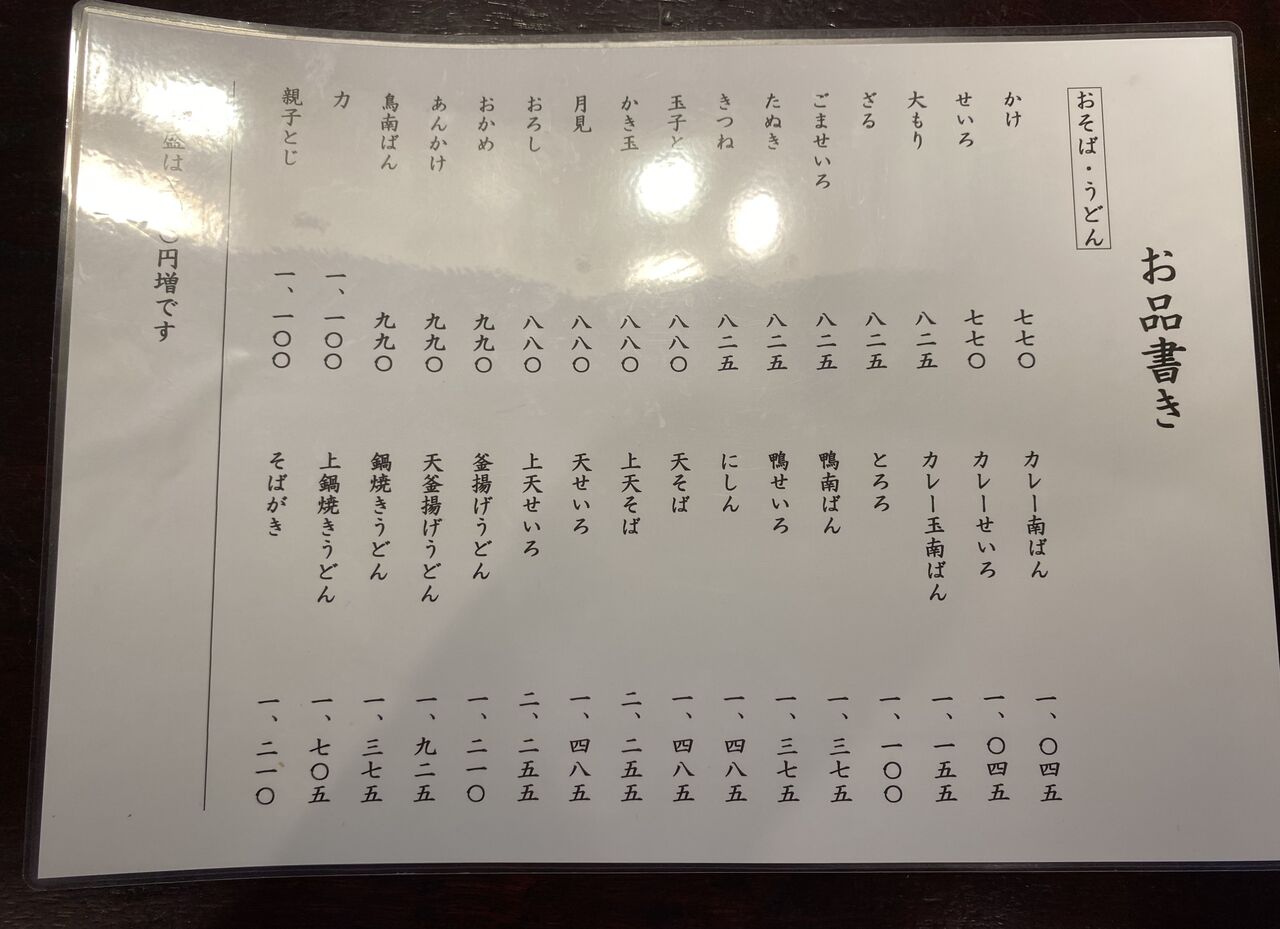 お品書き
おそば・うどん
かけ 七七〇
せいろ 七七〇
大もり 八二五
ざる 八二五
ごませいろ 八二五
たぬき 八二五
きつね 八二五
玉子と 八八〇
かき玉 八八〇
月見 八八〇
おろし 八八〇
おかめ 九九〇
あんかけ 九九〇
鳥南ばん 九九〇
力 一、一〇〇
親子とじ 一、一〇〇
カレー南ばん 一、〇四五
カレーせいろ 一、〇四五
カレー玉南ばん 一、一五五
とろろ 一、一〇〇
鴨南ばん 一、三七五
鴨せいろ 一、三七五
にしん 一、四八五
天そば 一、四八五
上天そば 二、二五五
天せいろ 一、四八五
上天せいろ 二、二五五
釜揚げうどん 一、二一〇
天釜揚げうどん 一、九二五
鍋焼きうどん 一、三七五
上鍋焼きうどん 一、七〇五
そばがき 一、二一〇
盛は 〇円増です